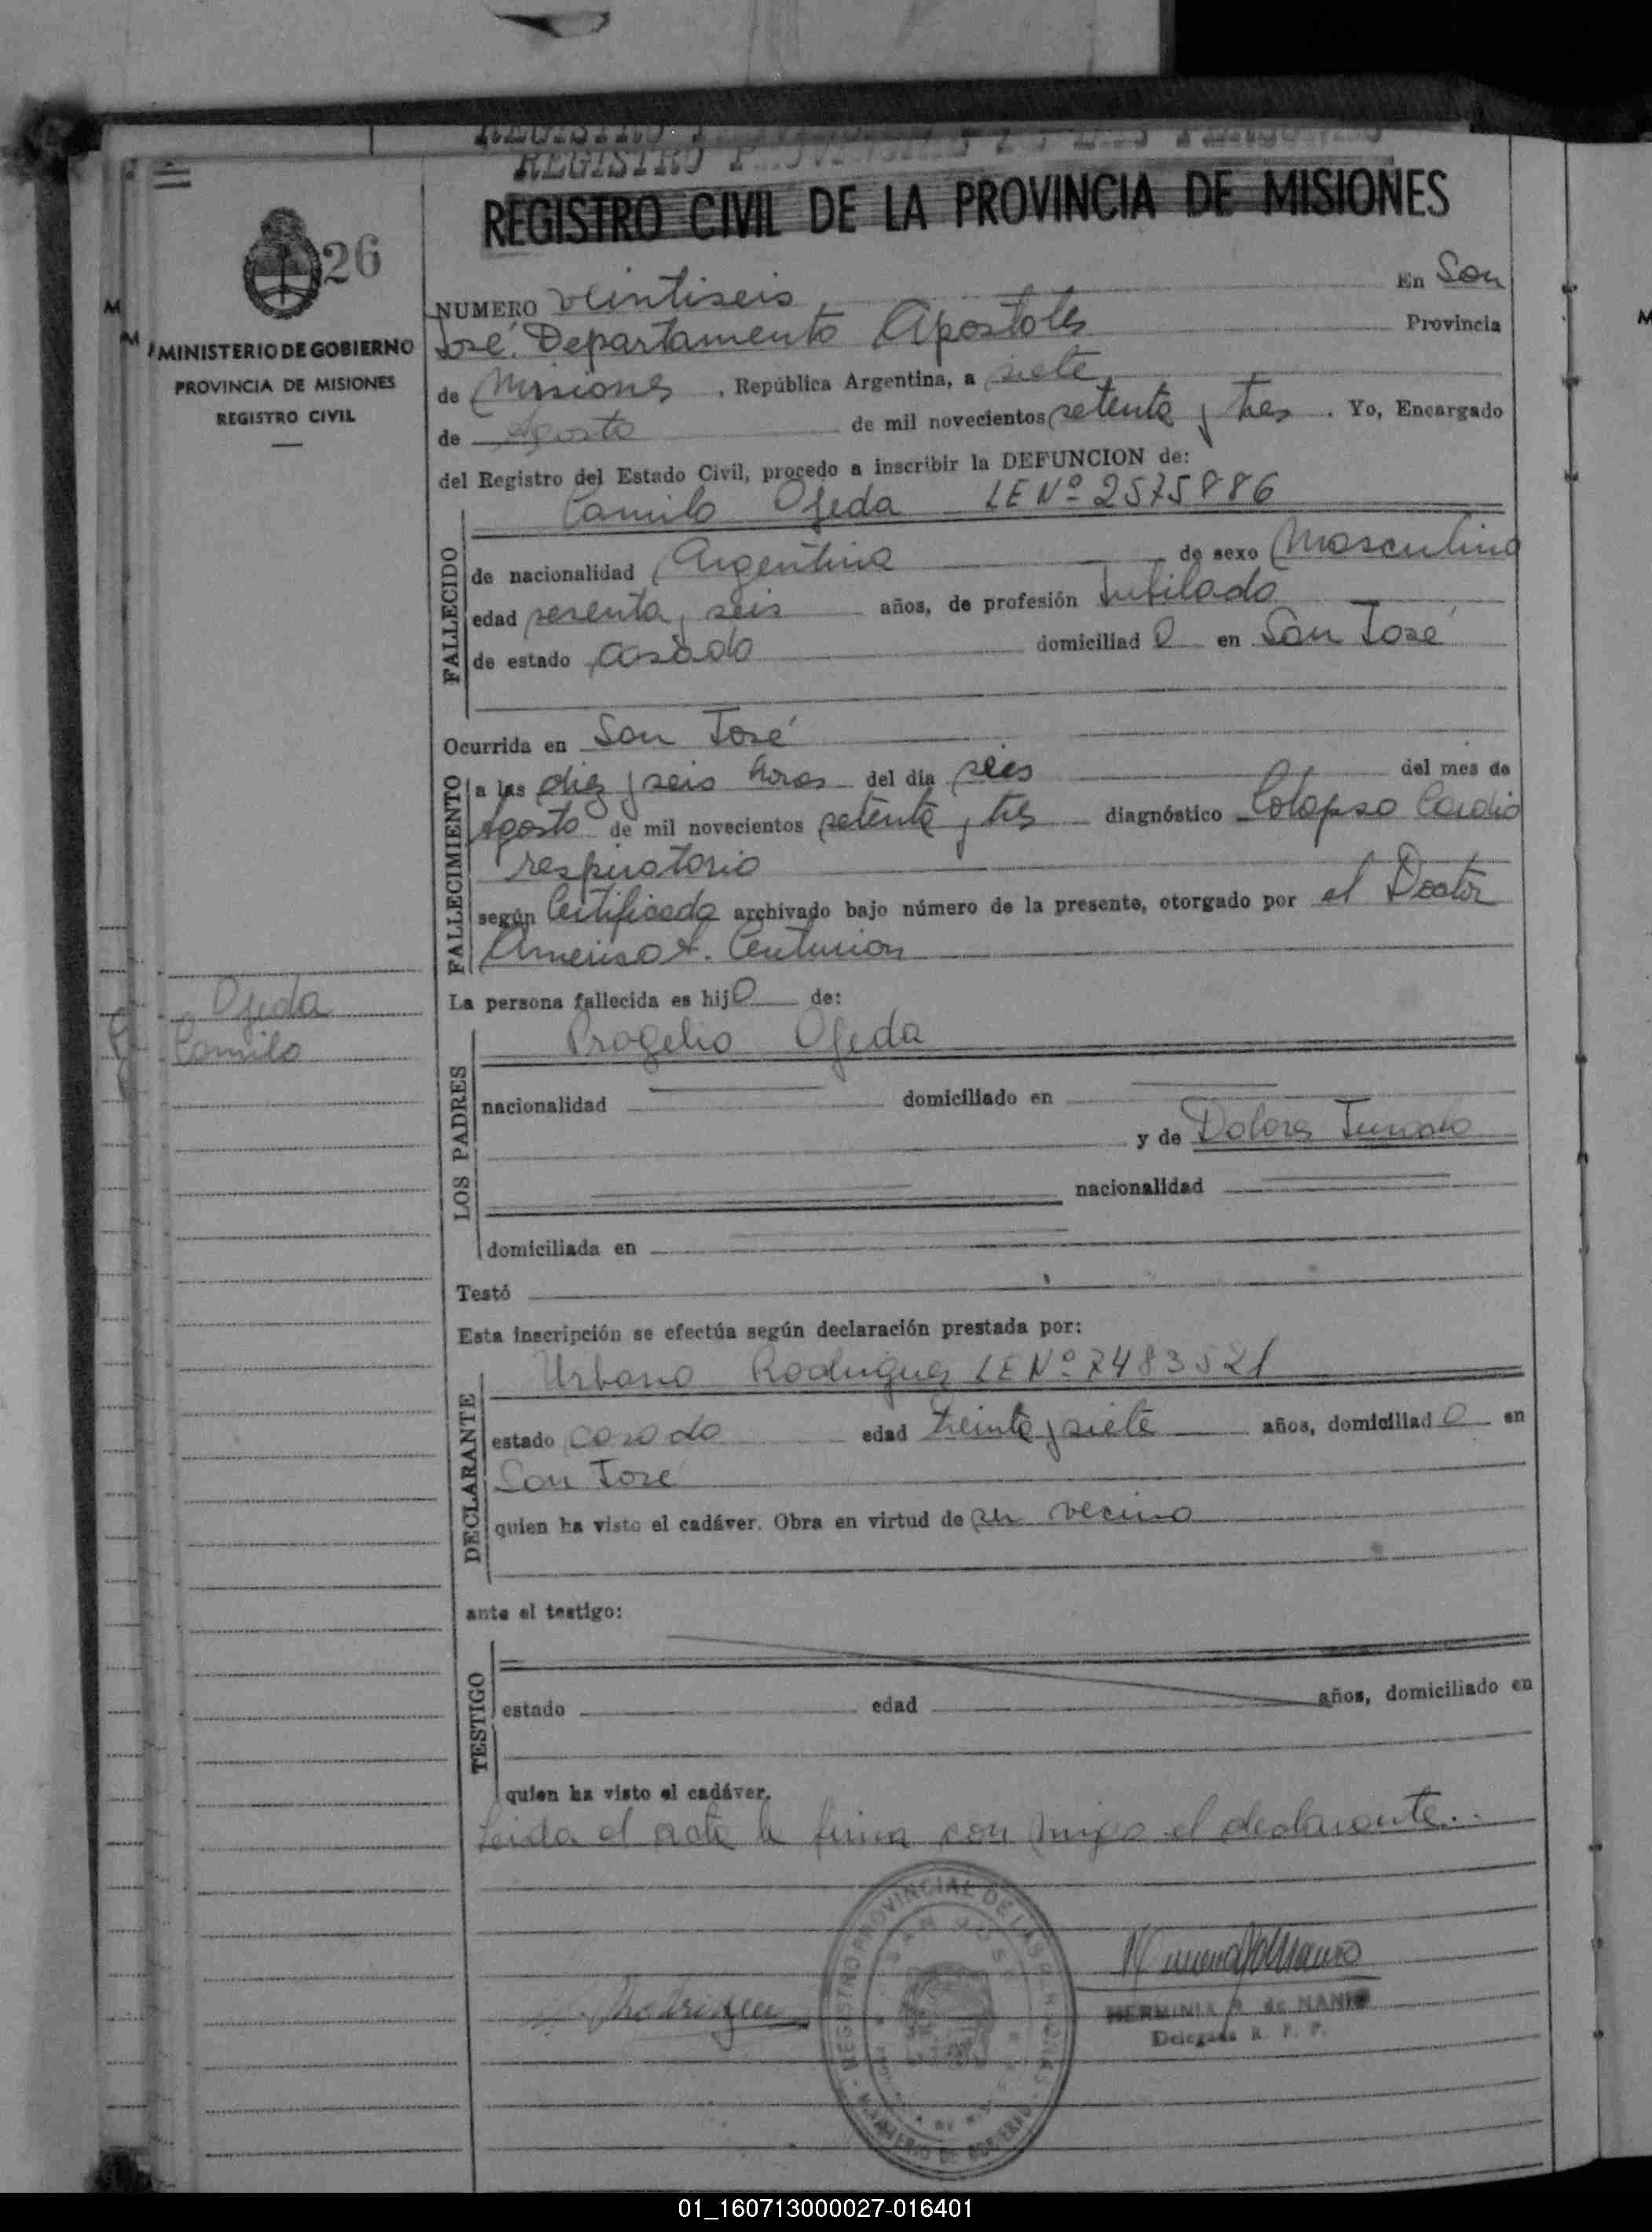 REGISTRO CIVIL DE LA PROVINCIA DE MISIONES
26
MINISTERIO DE GOBIERNO
PROVINCIA DE MISIONES
REGISTRO CIVIL
NUMERO veintiseis En San
José. Departamento Apostoles Provincia
de Misiones, República Argentina, a siete
de Agosto de mil novecientos setenta y tres. Yo, Encargado
del Registro del Estado Civil, procedo a inscribir la DEFUNCION de:
Camilo Ojeda LE Nº 2575886
FALLECIDO
de nacionalidad Argentina de sexo Masculino
edad sesenta y seis años, de profesión Jubilado
de estado casado domiciliad o en San José
Ocurrida en San José
FALLECIMIENTO
a las diez y seis horas del día seis del mes de
Agosto de mil novecientos setenta y tres diagnóstico Colapso Cardio
respiratorio
según Certificado archivado bajo número de la presente, otorgado por el Doctor
Americo A. Centurion
Ojeda
Camilo
La persona fallecida es hijo de:
LOS PADRES
Rogelio Ojeda
nacionalidad domiciliado en
y de Dolores
nacionalidad
domiciliada en
Testó
Esta inscripción se efectúa según declaración prestada por:
DECLARANTE
Urbano Rodriguez LE Nº 7483521
estado casado edad treinta y siete años, domiciliad o en
San José
quien ha visto el cadáver. Obra en virtud de ser vecino
ante el testigo:
TESTIGO
estado edad años, domiciliado en
quien ha visto el cadáver.
Leida el acta la firma con migo el declarante..
REGISTRO PROVINCIAL DE LAS PERSONAS
SAN JOSE
MINISTERIO DE GOBIERNO
Rodriguez
HERMINIA de NANIO
Delegada R. P. P.
01_160713000027-016401